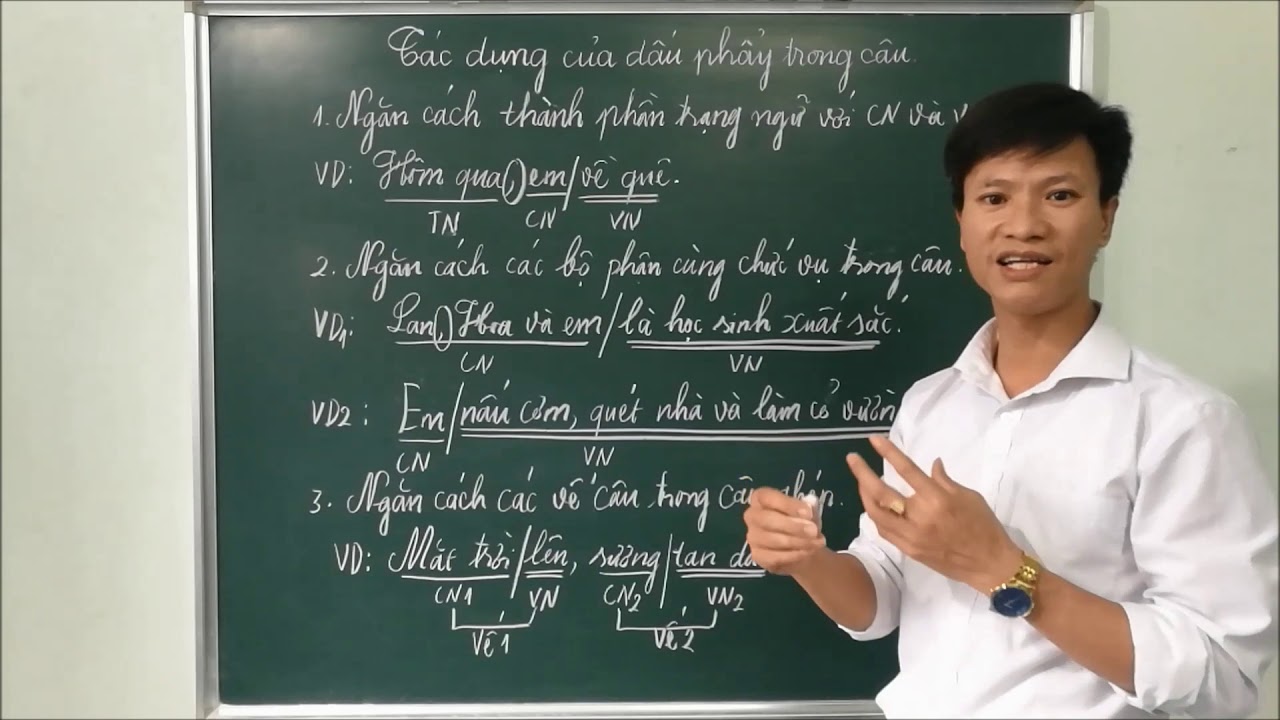 Tác dụng của dấu phẩy trong câu.
1. Ngăn cách thành phần trạng ngữ với CN và
VD: Hôm qua, em/về quê.
TN CN VN
2. Ngăn cách các bộ phận cùng chức vụ trong câu.
VD1: Lan, Hoa và em/là học sinh xuất sắc.
CN VN
VD2: Em/nấu cơm, quét nhà và làm cỏ vườn
CN VN
3. Ngăn cách các vế câu trong câu ghép.
VD: Mặt trời/lên, sương/tan
CN1 VN CN2 VN2
Vế 1 Vế 2